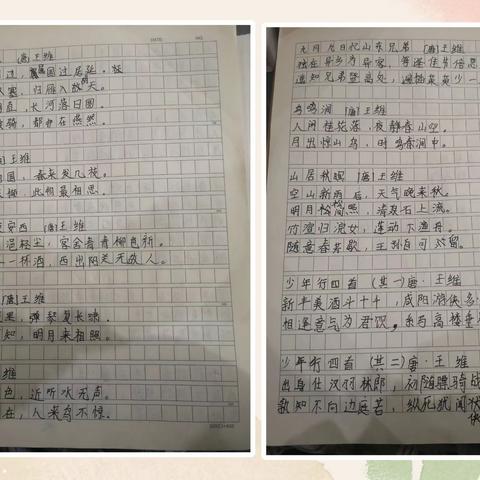 [唐]王维
过，属国过居延。征
塞，归雁入胡天。
直，长河落日圆。
骑，都护在燕然。
王维
国，春来发几枝。
撷，此物最相思。
安西 [唐]王维
浥轻尘，客舍青青柳色新。
一杯酒，西出阳关无故人。
[唐]王维
里，弹琴复长啸。
知，明月来相照。
维
色，近听水无声。
在，人来鸟不惊。
九月九日忆山东兄弟 [唐]王维
独在异乡为异客，每逢佳节倍思
遥知兄弟登高处，遍插茱萸少一
鸟鸣涧 [唐]王维
人闲桂花落，夜静春山空。
月出惊山鸟，时鸣春涧中。
山居秋暝 [唐]王维
空山新雨后，天气晚来秋。
明月松间照，清泉石上流。
竹喧归浣女，莲动下渔舟。
随意春芳歇，王孙自可留。
少年行四首（其一）唐·王维
新丰美酒斗十千，咸阳游侠多
相逢意气为君饮，系马高楼垂
少年行四首（其二）唐·王维
出身仕汉羽林郎，初随骠骑战
孰知不向边庭苦，纵死犹闻侠